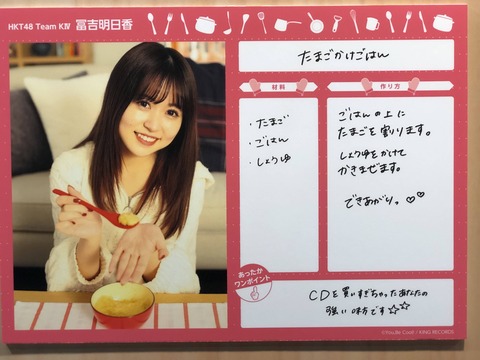 HKT48 Team KⅣ 冨吉明日香
たまごかけごはん
材料
・たまご
・ごはん
・しょうゆ
作り方
ごはんの上に
たまごを割ります。
しょうゆをかけて
かきまぜます。
できあがりっ ♡♡
あったか
ワンポイント
CDを買いすぎちゃったあなたの
強い味方です☆☆
©You, Be Cool! / KING RECORDS